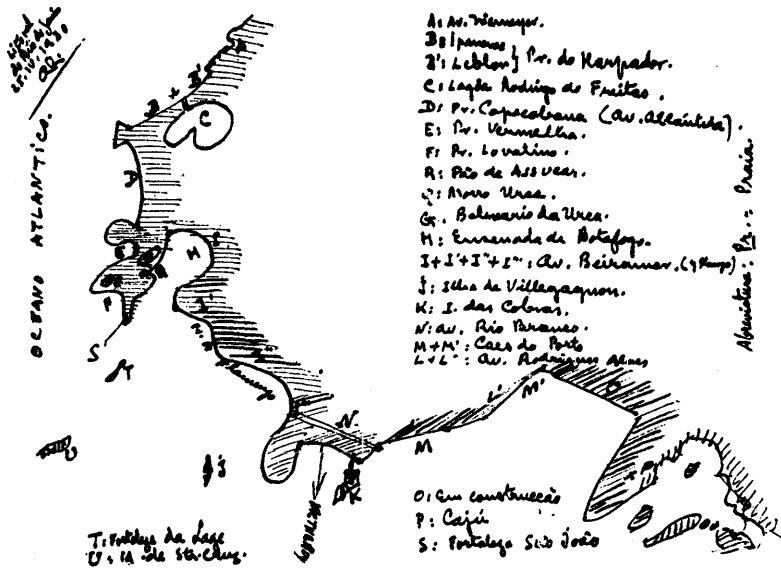 Littoral
do Rio de Janeiro
25.IV.1930
OCEANO ATLANTICO.
A: Av. Niemeyer.
B: Ipanema
B': Leblon } Pr. do Harpador.
C: Lagôa Rodrigo de Freitas.
D: Pr. Copacabana (Av. Atlântica).
E: Pr. Vermelha.
F: Pr.
R: Pão de Assucar.
Q: Morro Urca.
G. Balneario da Urca.
H: Enseada de Botafogo.
I+I'+I''+I''': Av. Beiramar.
J: Ilha de Villegagnon.
K: I. das Cobras.
N: Av. Rio Branco.
M+M': Caes do Porto
L+L': Av. Rodrigues Alves
Abreviatura: Pr. = Praia.
A
B'
+
B
C
D
E
H
I
F
I'
S
T
Flamengo
U
J
N
K
M
L'
M'
O
P
NICTHEROY
O: Em construcção
P: Cajú
S: Fortaleza São João
T: Fortaleza da Lage
U: de Sta. Cruz.